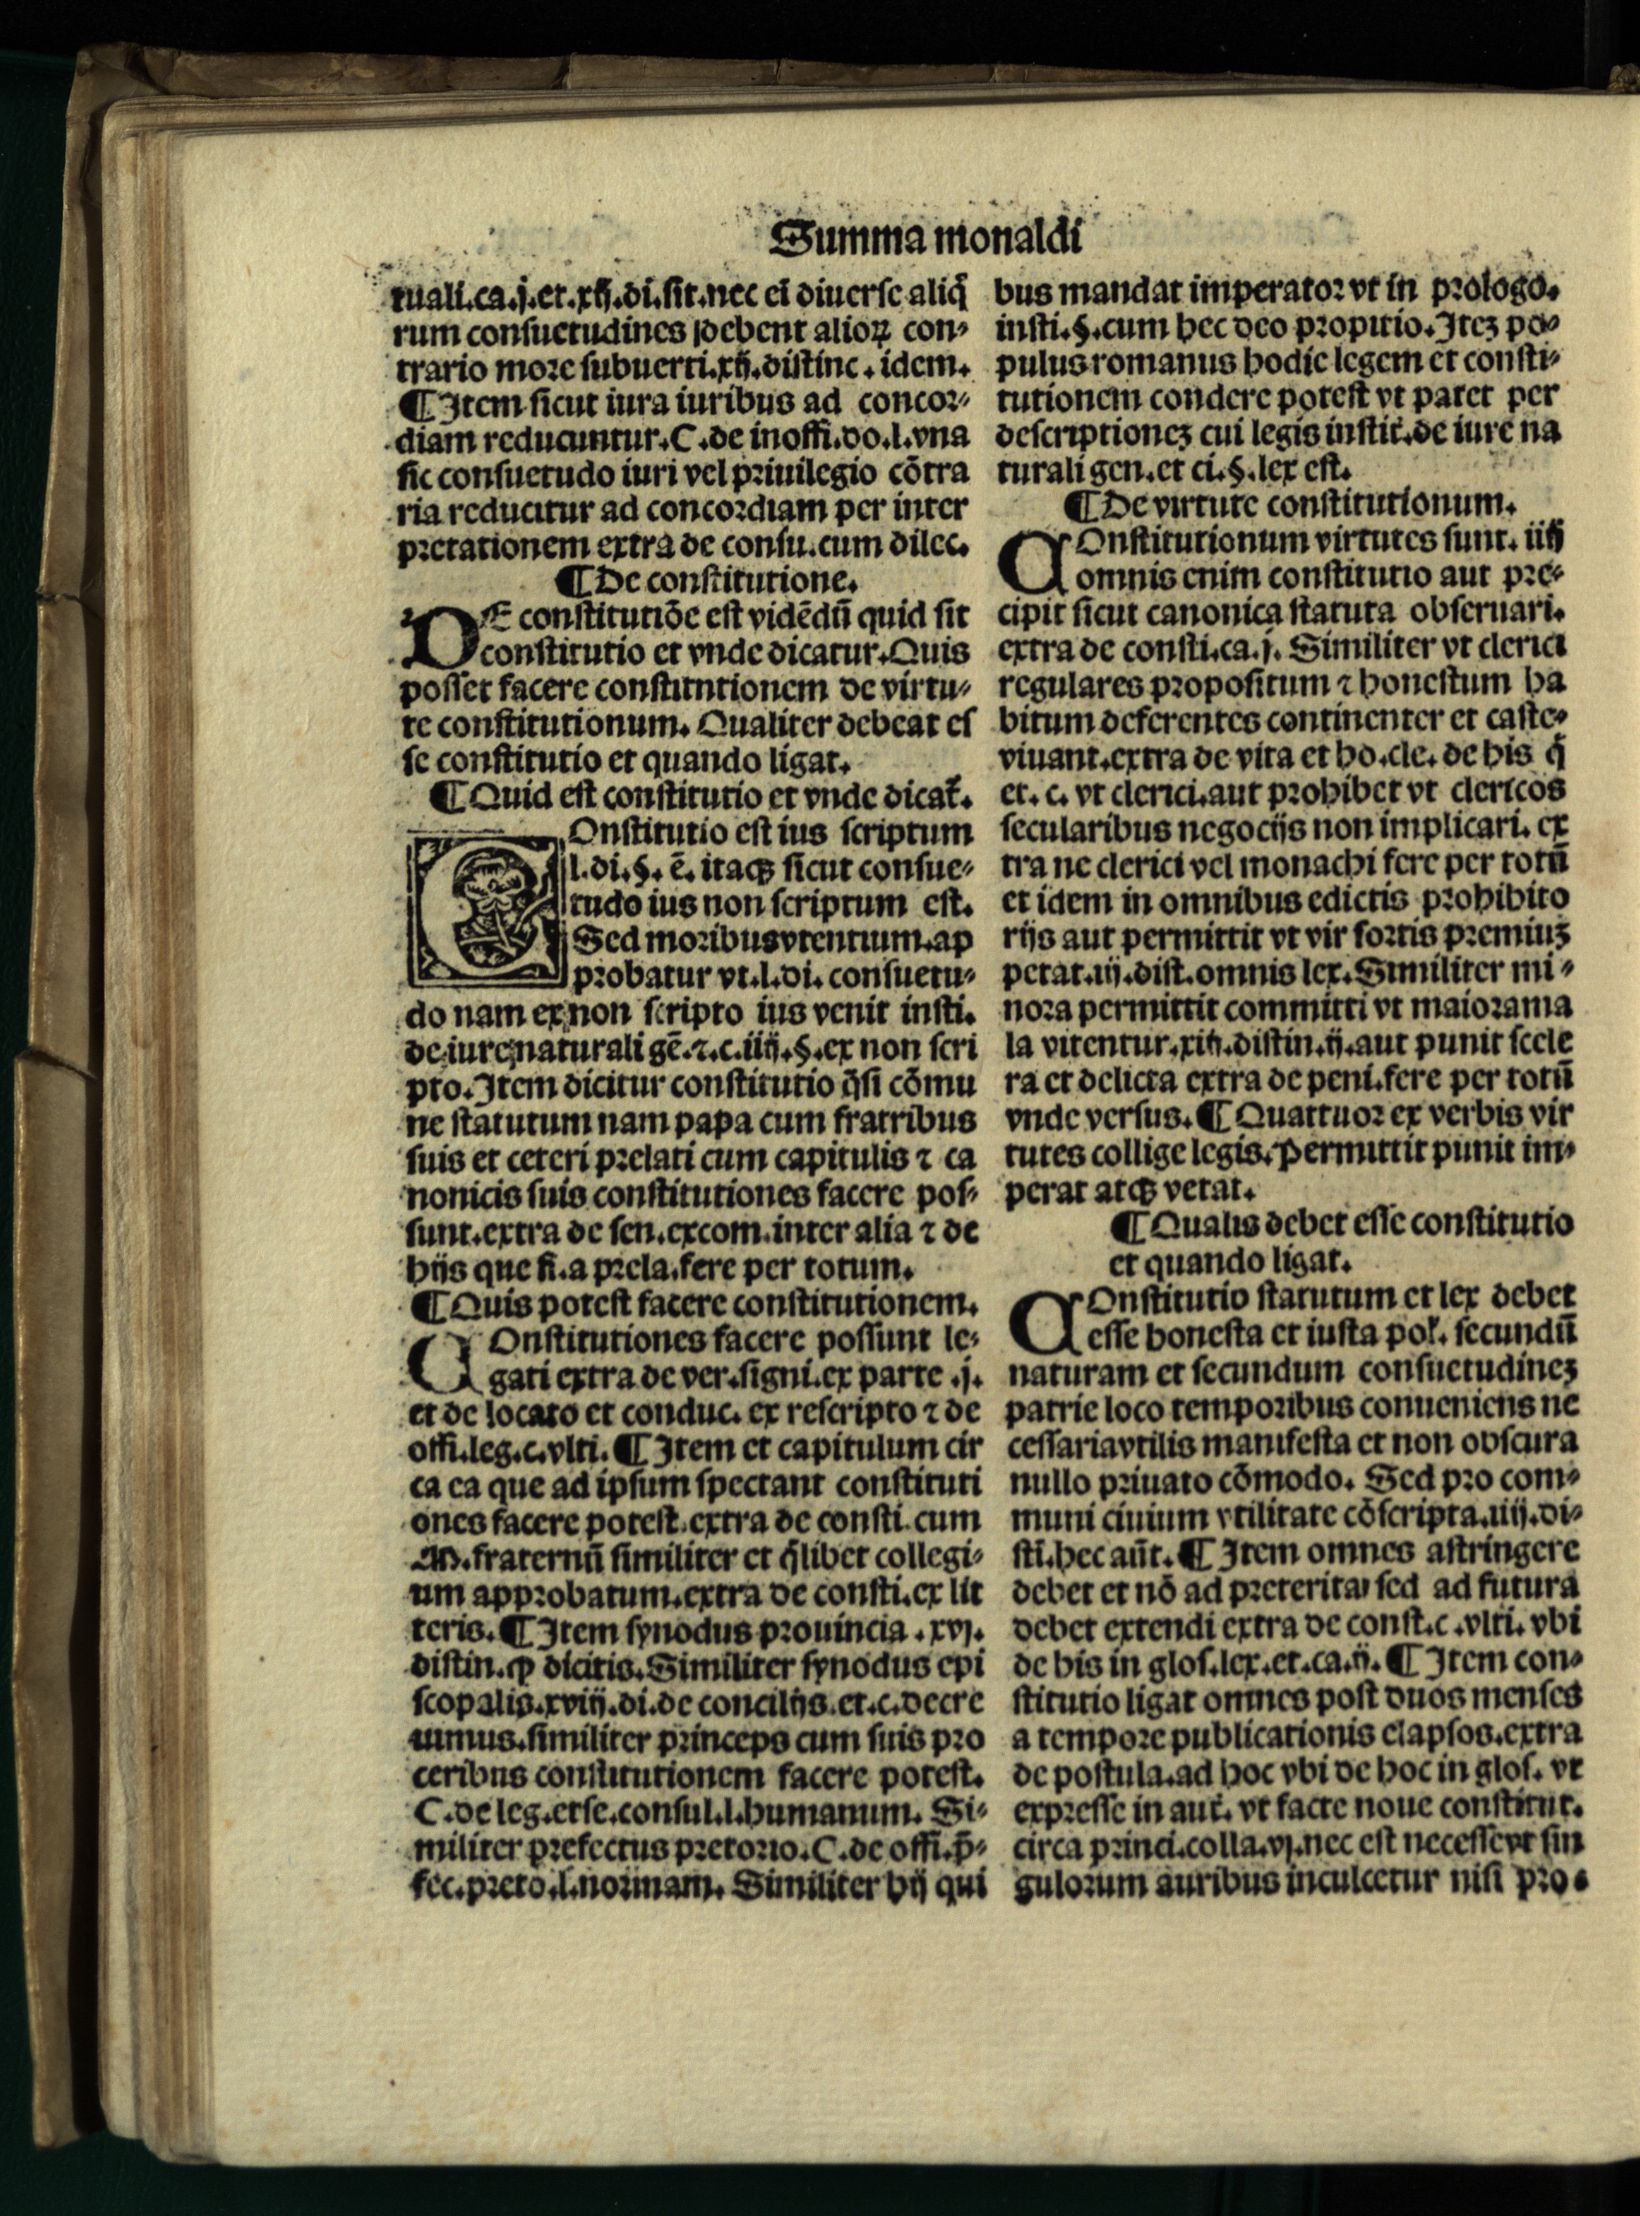 Summa monaldi
tuali.ca.j.et.xij.di.sit.nec ei diuerse aliq̄
rum consuetudines debent alioꝝ con-
trario more subuerti.xij.distinc. idem.
¶Item sicut iura iuribus ad concor-
diam reducuntur.C.de inoffi.do.l.vna
sic consuetudo iuri vel priuilegio cōtra
ria reducitur ad concordiam per inter
pretationem extra de consu.cum dilec.
¶De constitutione.
DE constitutiōe est vidēdū quid sit
constitutio et vnde dicatur.Quis
posset facere constitntionem de virtu-
te constitutionum. Qualiter debeat es
se constitutio et quando ligat.
¶Quid est constitutio et vnde dicat᷑.
COnstitutio est ius scriptum
l.di.§. ē. itaqꝫ sicut consue-
tudo ius non scriptum est.
Sed moribusvtentium.ap
probatur vt.l.di. consuetu-
do nam ex non scripto ius venit insti.
de iure naturali gē.⁊.c.iiij.§.ex non scri
pto.Item dicitur constitutio q̄si cōmu
ne statutum nam papa cum fratribus
suis et ceteri prelati cum capitulis ⁊ ca
nonicis suis constitutiones facere pos-
sunt.extra de sen.excom.inter alia ⁊ de
hijs que fi.a prela.fere per totum.
¶Quis potest facere constitutionem.
COnstitutiones facere possunt le-
gati extra de ver.signi.ex parte .j.
et de locato et conduc. ex rescripto ⁊ de
offi.leg.c.vlti.¶Item et capitulum cir
ca ea que ad ipsum spectant constituti
ones facere potest.extra de consti.cum
M.fraternū similiter et q̄libet collegi-
um approbatum.extra de consti.ex lit
teris.¶Item synodus prouincia .xvj.
distin.ꝙ dicitis.Similiter synodus epi
scopalis.xviij.di.de concilijs.et.c.decre
uimus.similiter princeps cum suis pro
ceribus constitutionem facere potest.
C.de leg.etse.consul.l.humanum. Si-
militer prefectus pretorio.C.de offi.p̄-
fec.preto.l.normam. Similiter hij qui
bus mandat imperator vt in prologo.
insti.§.cum hec deo propitio.Iteꝫ po-
pulus romanus hodie legem et consti-
tutionem condere potest vt patet per
descriptioneꝫ cui legis instit̄.de iure na
turali gen.et ci.§.lex est.
¶De virtute constitutionum.
COnstitutionum virtutes sunt. iiij
omnis enim constitutio aut pre-
cipit sicut canonica statuta obseruari.
extra de consti.ca.j. Similiter vt clerici
regulares propositum ⁊ honestum ha
bitum deferentes continenter et caste-
viuant.extra de vita et ho.cle. de his q̄
et. c. vt clerici.aut prohibet vt clericos
secularibus negocijs non implicari. ex
tra ne clerici vel monachi fere per totū
et idem in omnibus edictis prohibito
rijs aut permittit vt vir fortis premiuꝫ
petat.iij.dist.omnis lex.Similiter mi-
nora permittit committi vt maiorama
la vitentur.xiij.distin.ij.aut punit scele
ra et delicta extra de peni.fere per totū
vnde versus.¶Quattuor ex verbis vir
tutes collige legis.Permittit punit im-
perat atqꝫ vetat.
¶Qualis debet esse constitutio
et quando ligat.
COnstitutio statutum et lex debet
esse honesta et iusta pos᷑. secundū
naturam et secundum consuetudineꝫ
patrie loco temporibus conueniens ne
cessariavtilis manifesta et non obscura
nullo priuato cōmodo. Sed pro com-
muni ciuium vtilitate cōscripta.iiij.di-
stī.hec aūt.¶Item omnes astringere
debet et nō ad preterita sed ad futura
debet extendi extra de const.c .vlti. vbi
de his in glos.lex.et.ca.ij.¶Item con-
stitutio ligat omnes post duos menses
a tempore publicationis elapsos.extra
de postula.ad hoc vbi de hoc in glos. vt
expresse in aut̄. vt facte noue constitut.
circa princi.colla.vj.nec est necessevt sin
gulorum auribus inculcetur nisi pro-